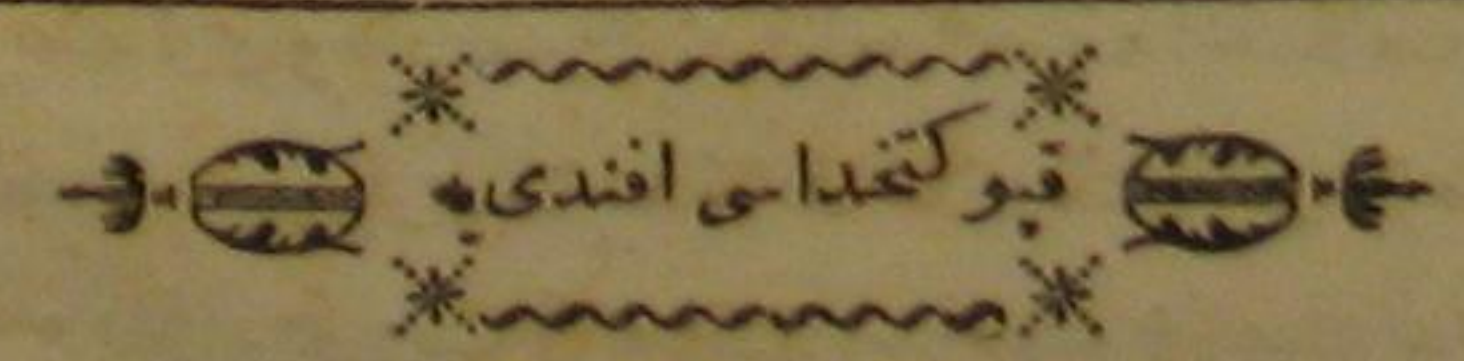 قپو كتخداسی افندی